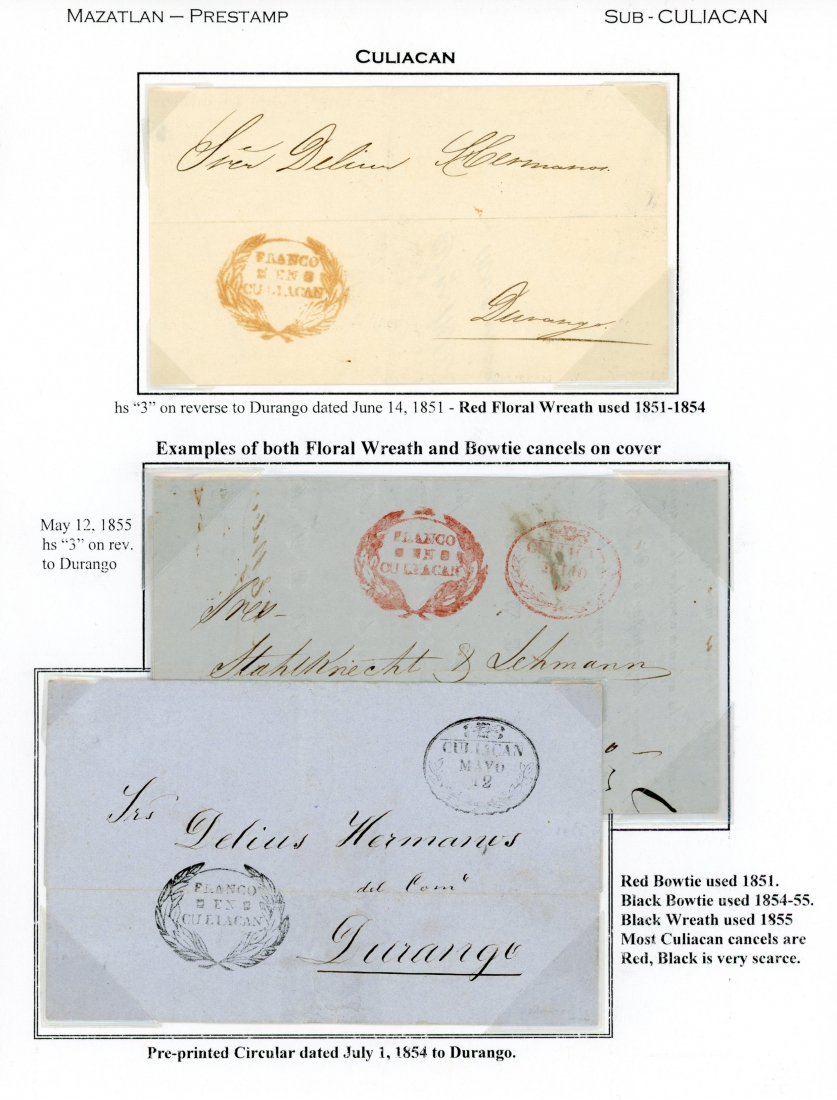 MAZATLAN – PRESTAMP
SUB - CULIACAN
CULIACAN
Delius Hermanos
FRANCO
EN
CULIACAN
Durango.
hs “3” on reverse to Durango dated June 14, 1851 - Red Floral Wreath used 1851-1854
Examples of both Floral Wreath and Bowtie cancels on cover
May 12, 1855
hs “3” on rev.
to Durango
FRANCO
EN
CULIACAN
CULIACAN
Sres
Stahlknecht & Lehmann
CULIACAN
MAYO
12
Srs
Delius Hermanos
del Comº
FRANCO
EN
CULIACAN
Durango
Red Bowtie used 1851.
Black Bowtie used 1854-55.
Black Wreath used 1855
Most Culiacan cancels are
Red, Black is very scarce.
Pre-printed Circular dated July 1, 1854 to Durango.